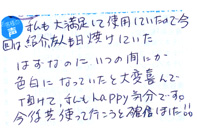 声
私も大満足して使用していたので今
回は紹介友人も日焼けしていた
はずなのに、いつの間にか
色白になっていたと大変喜んで
頂けて、私もhappy気分です。
今後共使って行こうと確信した!!